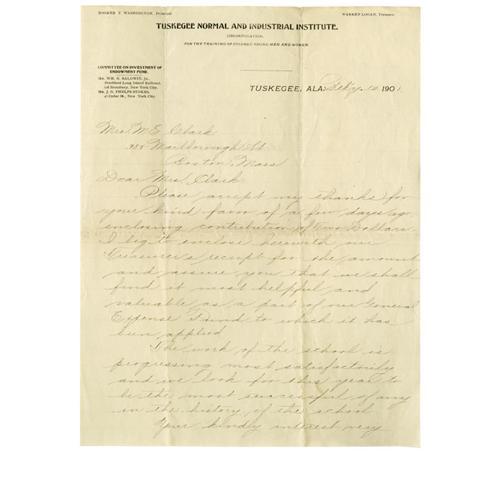 BOOKER T. WASHINGTON, Principal. WARREN LOGAN, Treasurer.
TUSKEGEE NORMAL AND INDUSTRIAL INSTITUTE.
(INCORPORATED)
FOR THE TRAINING OF COLORED YOUNG MEN AND WOMEN
COMMITTEE ON INVESTMENT OF
ENDOWMENT FUND.
MR. WM. H. BALDWIN, Jr.,
President Long Island Railroad,
128 Broadway, New York City.
MR. J. G. PHELPS STOKES,
47 Cedar St., New York City.
TUSKEGEE, ALA., Feb'y. 12, 1901.
Mrs. M. E. Clark
Marlborough St.
Boston, Mass
Dear Mrs. Clark:
Please accept my thanks for
your kind favor of a few days ago
enclosing contribution of Two Dollars.
I beg to enclose herewith our
Treasurer's receipt for the amount
and assure you that we shall
find it most helpful and
valuable as a part of our General
Expense Fund to which it has
been applied.
The work of the school is
progressing most satisfactorily
and we look for this year to
be the most successful of any
in the history of the school.
Your kindly interest very